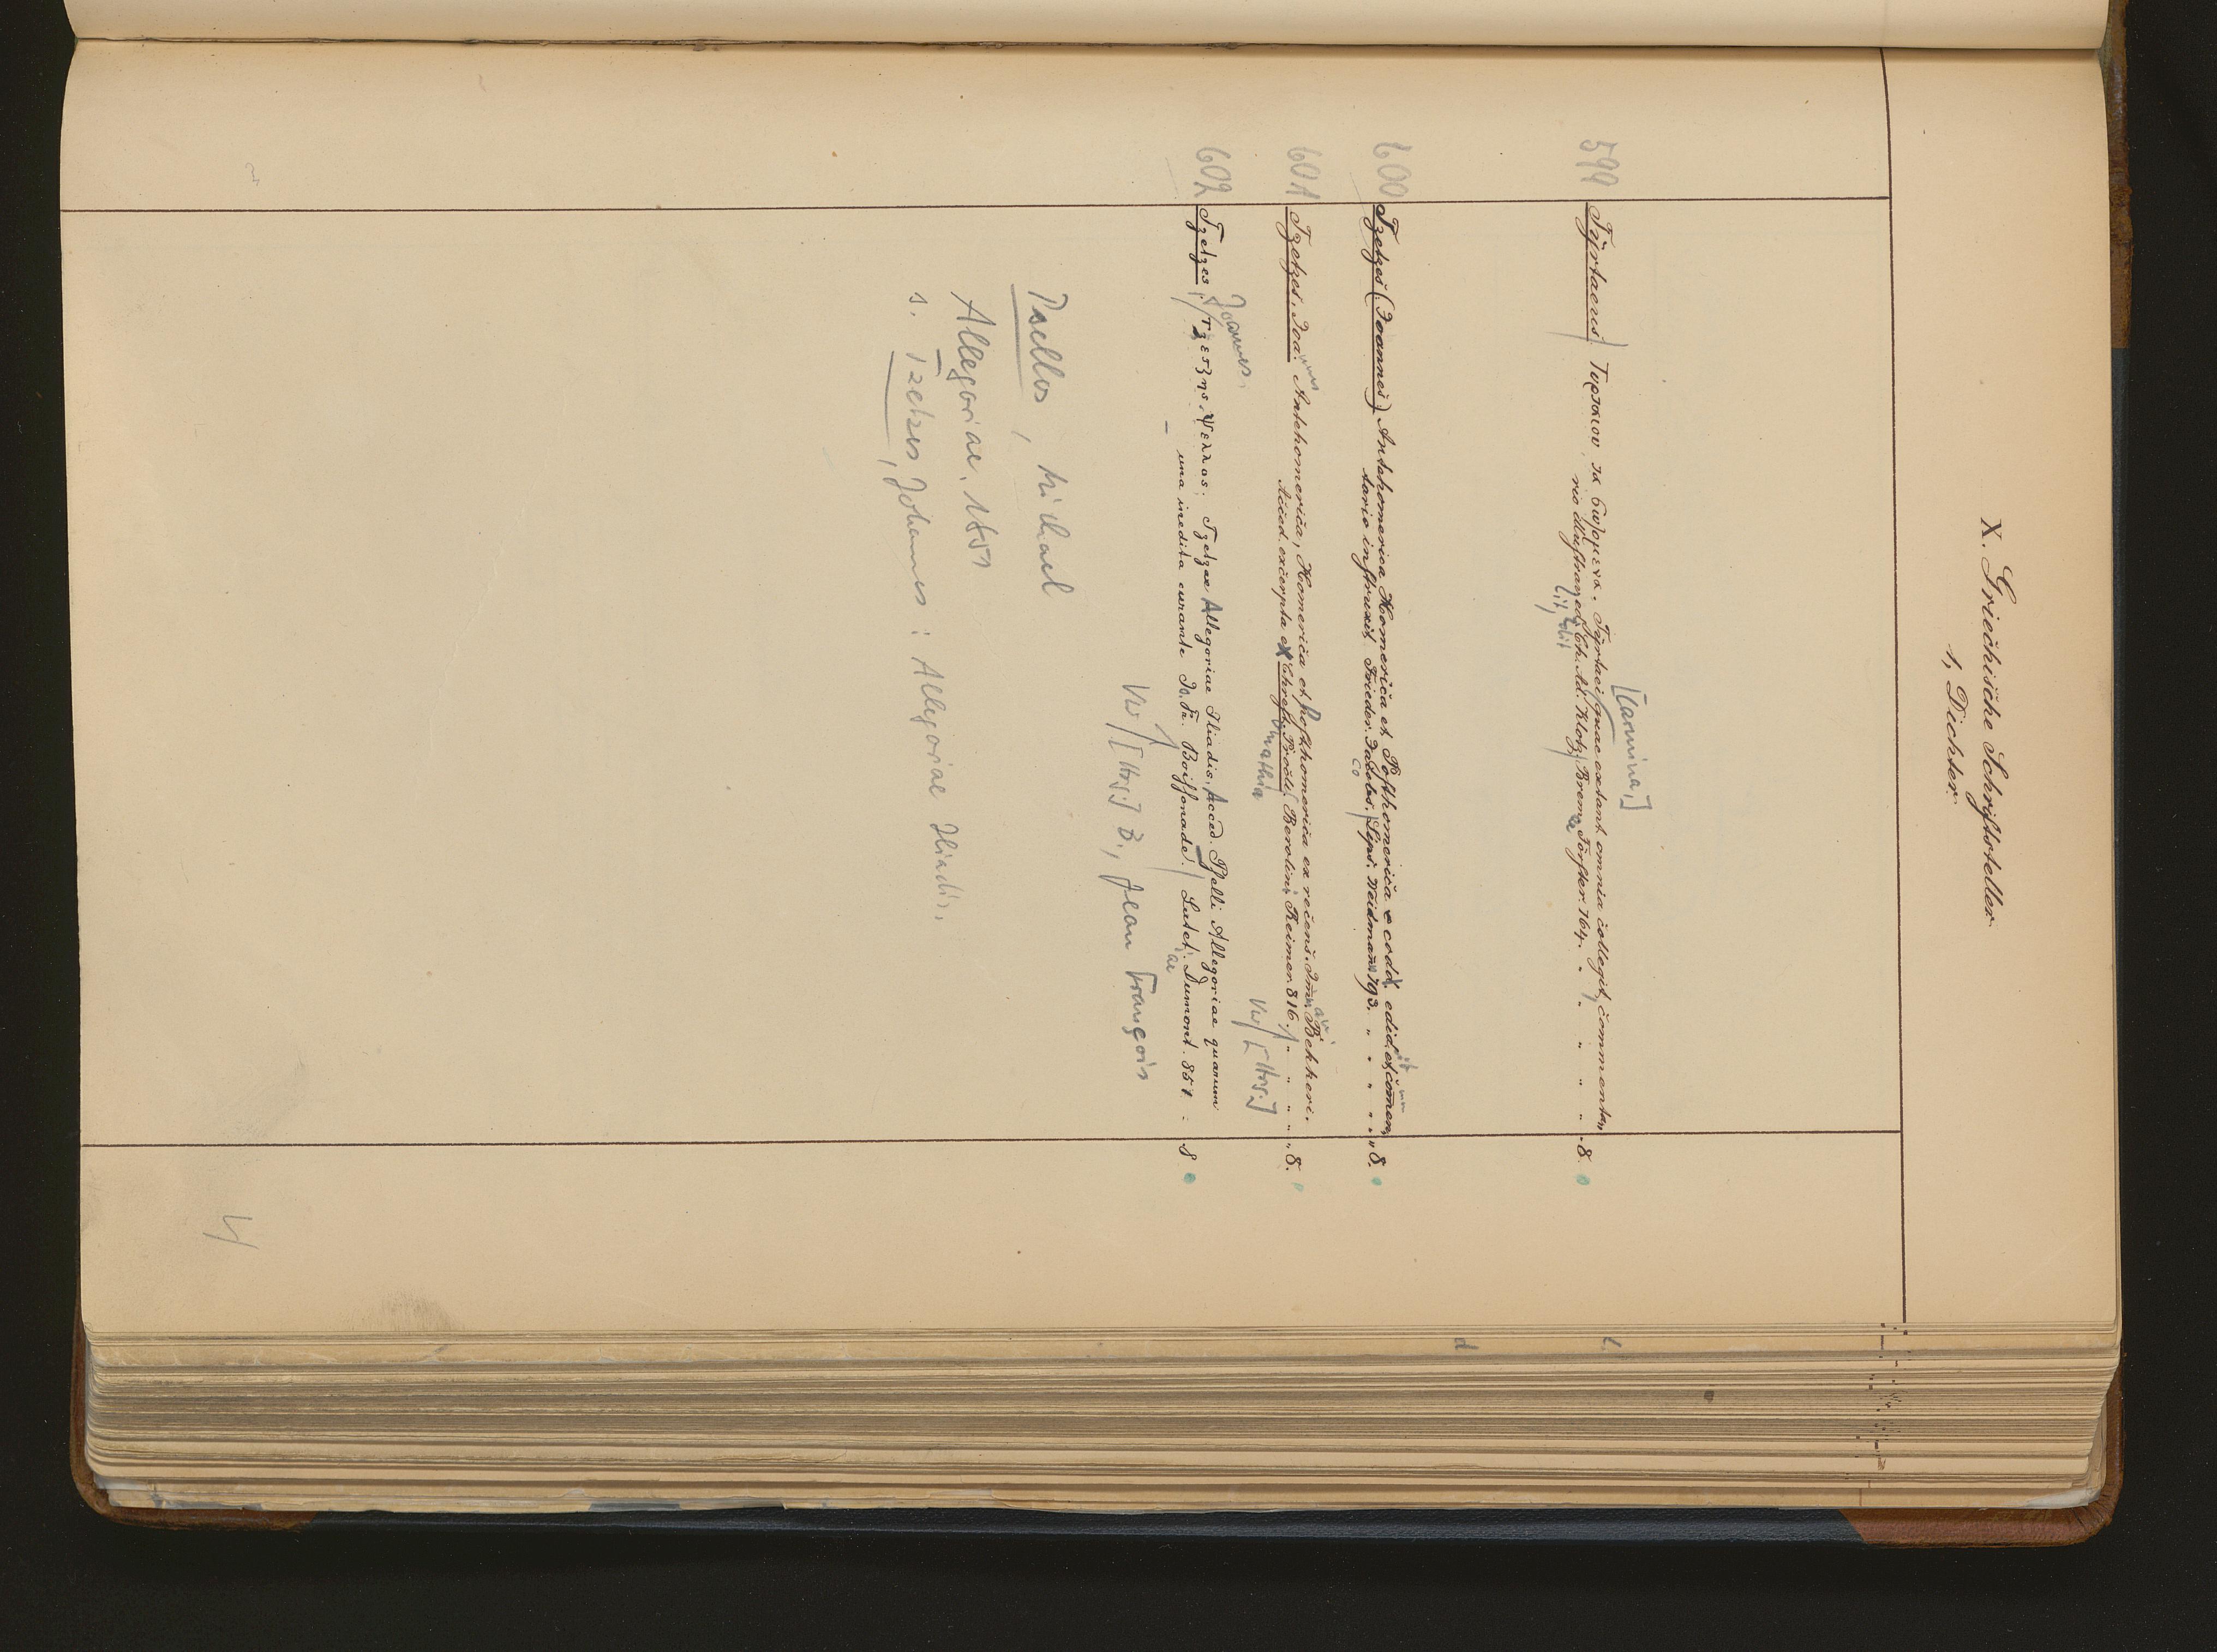 X. Griechische Schriftsteller
1, Dichter.
[Carmina,]
599 Tyrtaeus. Τυρταιου τα σωζομενα. Tyrtaei quae extant omnia collegit, commenta„
rio illustrav. ed. Ch. Ad. Klotz. Bremae Förster. 764. " " " " " 8.
it, edit
600 Tzetzes (Joannes) Antehomerica Homerica et Posthomerica e codd. edid. et comen„
tario instruxit Frieder. Jacobs. Lips. Weidmann 793. " " " " " 8.
601 Tzetzes, Joa. Antehomerica, Homerica et Posthomerica ex recens. Im. Bekkeri.
Acced. excerpta ex Chrest. Procli. Berolini Reimer. 816. " " " " 8.
omathia
VW/[Hrsg.]
Joannes.
602 Tzetzes, Τζετζης, Ψελλος. Tzetzae Allegoriae Iliadis, Acced. Pselli Allegoriae quarum
una inedita curante Jo. Fr. Boissonade. Lutetiae Dumont. 851. " 8
VW/[Hrsg.] B., Jean François
Psellos, Michael
Allegoriae. 1851
s. Tzetzes, Johannes: Allegoriae Iliadis.